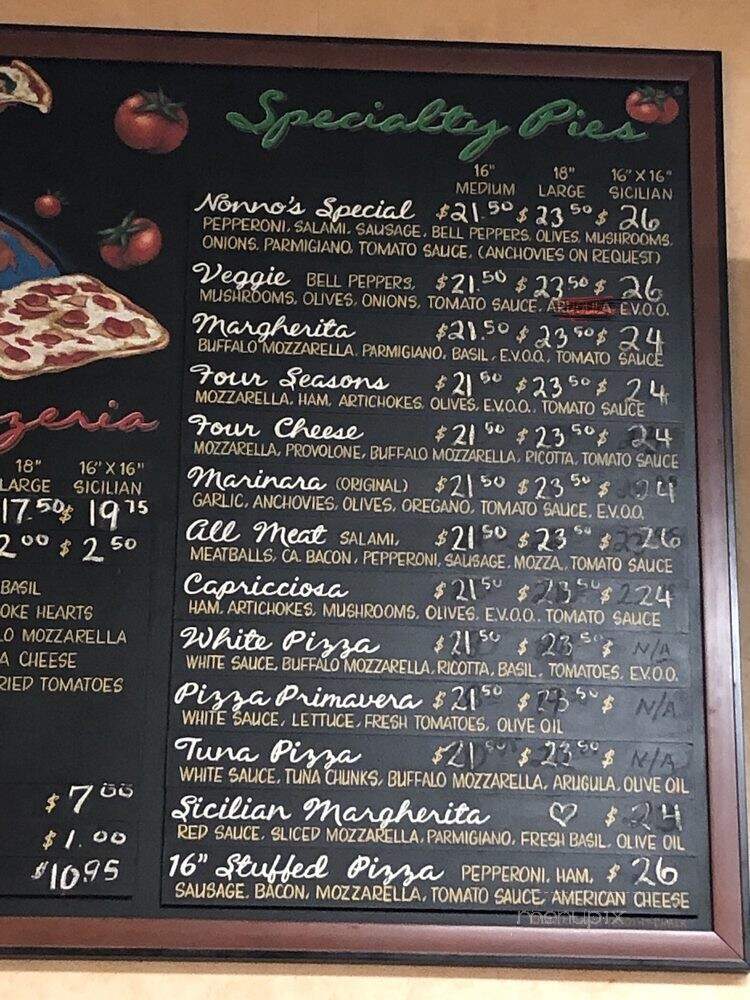 Specialty Pies
16" 18" 16" X 16"
MEDIUM LARGE SICILIAN
Nonno's Special $21.50 $23.50 $26
PEPPERONI, SALAMI, SAUSAGE, BELL PEPPERS, OLIVES, MUSHROOMS,
ONIONS, PARMIGIANO, TOMATO SAUCE, (ANCHOVIES ON REQUEST)
Veggie BELL PEPPERS, $21.50 $23.50 $26
MUSHROOMS, OLIVES, ONIONS, TOMATO SAUCE, ARUGULA, E.V.O.O.
Margherita $21.50 $23.50 $24
BUFFALO MOZZARELLA, PARMIGIANO, BASIL, E.V.O.O., TOMATO SAUCE
Four Seasons $21.50 $23.50 $24
MOZZARELLA, HAM, ARTICHOKES, OLIVES, E.V.O.O., TOMATO SAUCE
Four Cheese $21.50 $23.50 $24
MOZZARELLA, PROVOLONE, BUFFALO MOZZARELLA, RICOTTA, TOMATO SAUCE
Marinara (ORIGINAL) $21.50 $23.50 $24
GARLIC, ANCHOVIES, OLIVES, OREGANO, TOMATO SAUCE, E.V.O.O.
All Meat SALAMI, $21.50 $23.50 $26
MEATBALLS, CA. BACON, PEPPERONI, SAUSAGE, MOZZA, TOMATO SAUCE
Capricciosa $21.50 $23.50 $24
HAM, ARTICHOKES, MUSHROOMS, OLIVES, E.V.O.O., TOMATO SAUCE
White Pizza $21.50 $23.50 $ N/A
WHITE SAUCE, BUFFALO MOZZARELLA, RICOTTA, BASIL, TOMATOES, E.V.O.O.
Pizza Primavera $21.50 $23.50 $ N/A
WHITE SAUCE, LETTUCE, FRESH TOMATOES, OLIVE OIL
Tuna Pizza $21.50 $23.50 $ N/A
WHITE SAUCE, TUNA CHUNKS, BUFFALO MOZZARELLA, ARUGULA, OLIVE OIL
Sicilian Margherita ♡ $24
RED SAUCE, SLICED MOZZARELLA, PARMIGIANO, FRESH BASIL, OLIVE OIL
16" Stuffed Pizza PEPPERONI, HAM, $26
SAUSAGE, BACON, MOZZARELLA, TOMATO SAUCE, AMERICAN CHEESE
menupix
zeria
18" 16" X 16"
LARGE SICILIAN
17.50 $19.75
2.00 $2.50
BASIL
OKE HEARTS
LO MOZZARELLA
A CHEESE
RIED TOMATOES
$7.00
$1.00
$10.95